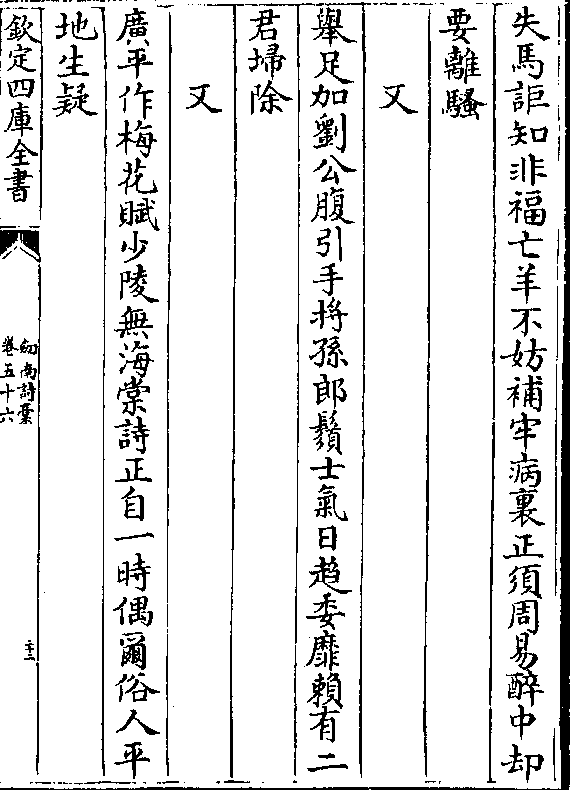 失馬詎知非福亡羊不妨補牢病裏正須周易醉中却
要離騷
又
舉足加劉公腹引手捋孫郎鬚士氣日趍委靡賴有二
君掃除
又
廣平作梅花賦少陵無海棠詩正自一時偶爾俗人平
地生疑
欽定四庫全書
劒南詩藁
卷五十六